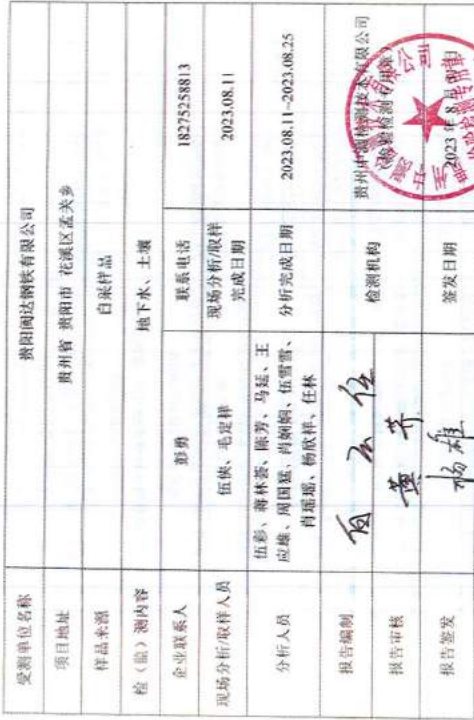 受测单位名称 贵阳闽达钢铁有限公司
项目地址 贵州省 贵阳市 花溪区孟关乡
样品来源 自采样品
检（监）测内容 地下水、土壤
企业联系人 彭勇 联系电话 18275258813
现场分析/取样人员 伍侠、毛定祥 现场分析/取样
完成日期 2023.08.11
分析人员 伍彩、蒋林荟、陈芳、马廷、王
应雄、周国猛、肖娴娴、伍雪雪、
肖瑶瑶、杨欣祥、任林 分析完成日期 2023.08.11~2023.08.25
报告编制 检测机构 贵州中测检测技术有限公司
（检验检测专用章）
报告审核 黄芹
报告签发 杨雄 签发日期 2023 年 8 月